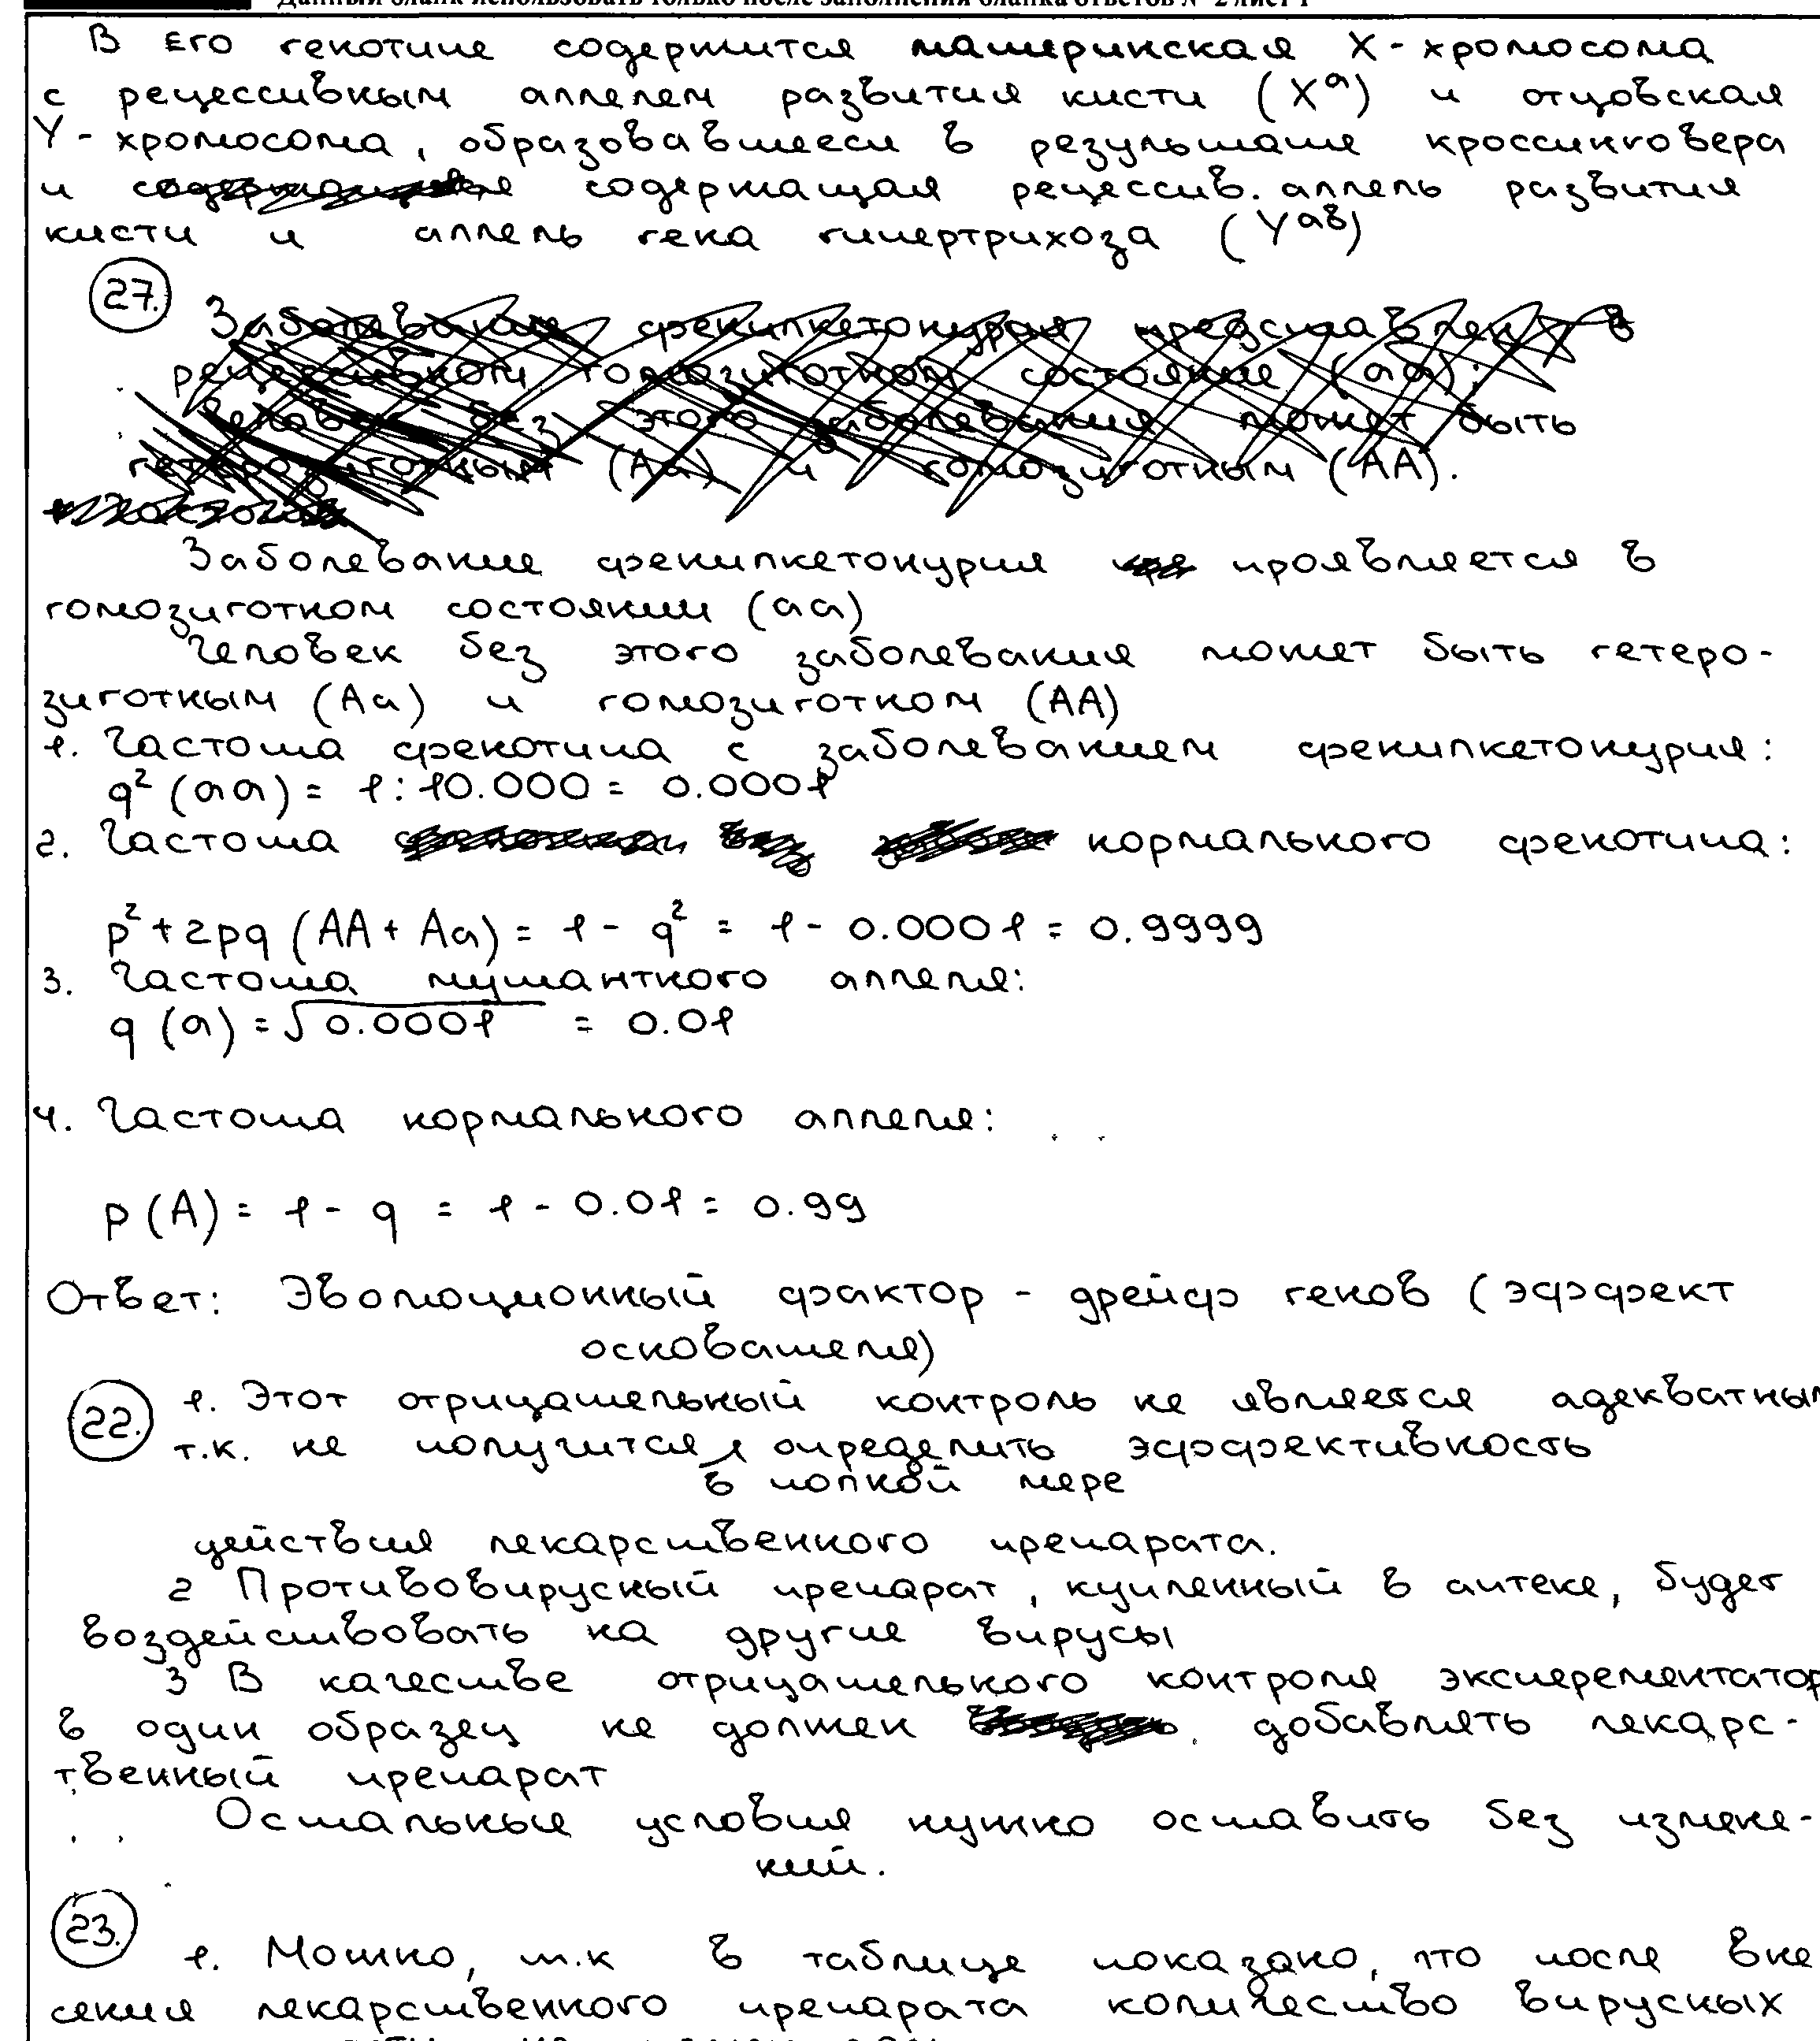 Данный бланк использовать только после заполнения бланка ответов № 2 лист 1
В его генотипе содержится материнская X-хромосома
с рецессивным аллелем развития кисти (Xᵃ) и отцовская
Y-хромосома, образовавшееся в результате кроссинговера
и содержащая рецессив. аллель развития
кисти и аллель гена гипертрихоза (Yᵃᵇ)
27.
Заболевание фенилкетонурия представлен в
рецессивном гомозиготном состоянии (аа);
Человек без этого заболевания может быть
гетерозиготным (Аа) и гомозиготным (АА).
Заболевание фенилкетонурия проявляется в
гомозиготном состоянии (аа)
Человек без этого заболевания может быть гетеро-
зиготным (Аа) и гомозиготном (АА)
1. Частота фенотипа с заболеванием фенилкетонурия:
q² (аа) = 1:10.000 = 0.0001
2. Частота нормального фенотипа:
p² + 2pq (AA + Aa) = 1 - q² = 1 - 0.0001 = 0.9999
3. Частота мутантного аллеля:
q (а) = √0.0001 = 0.01
4. Частота нормального аллеля:
p (A) = 1 - q = 1 - 0.01 = 0.99
Ответ: Эволюционный фактор - дрейф генов (эффект
основателя)
22. 1. Этот отрицательный контроль не является адекватным
т.к. не получится определить эффективность
в полной мере
действия лекарственного препарата.
2 Противовирусный препарат, купленный в аптеке, будет
воздействовать на другие вирусы
3 В качестве отрицательного контроля эксперементатор
в один образец не должен добавлять лекарс-
твенный препарат
Остальные условия нужно оставить без измене-
ний.
23.
1. Можно, т.к в таблице показано, что после вне
сения лекарственного препарата количество вирусных